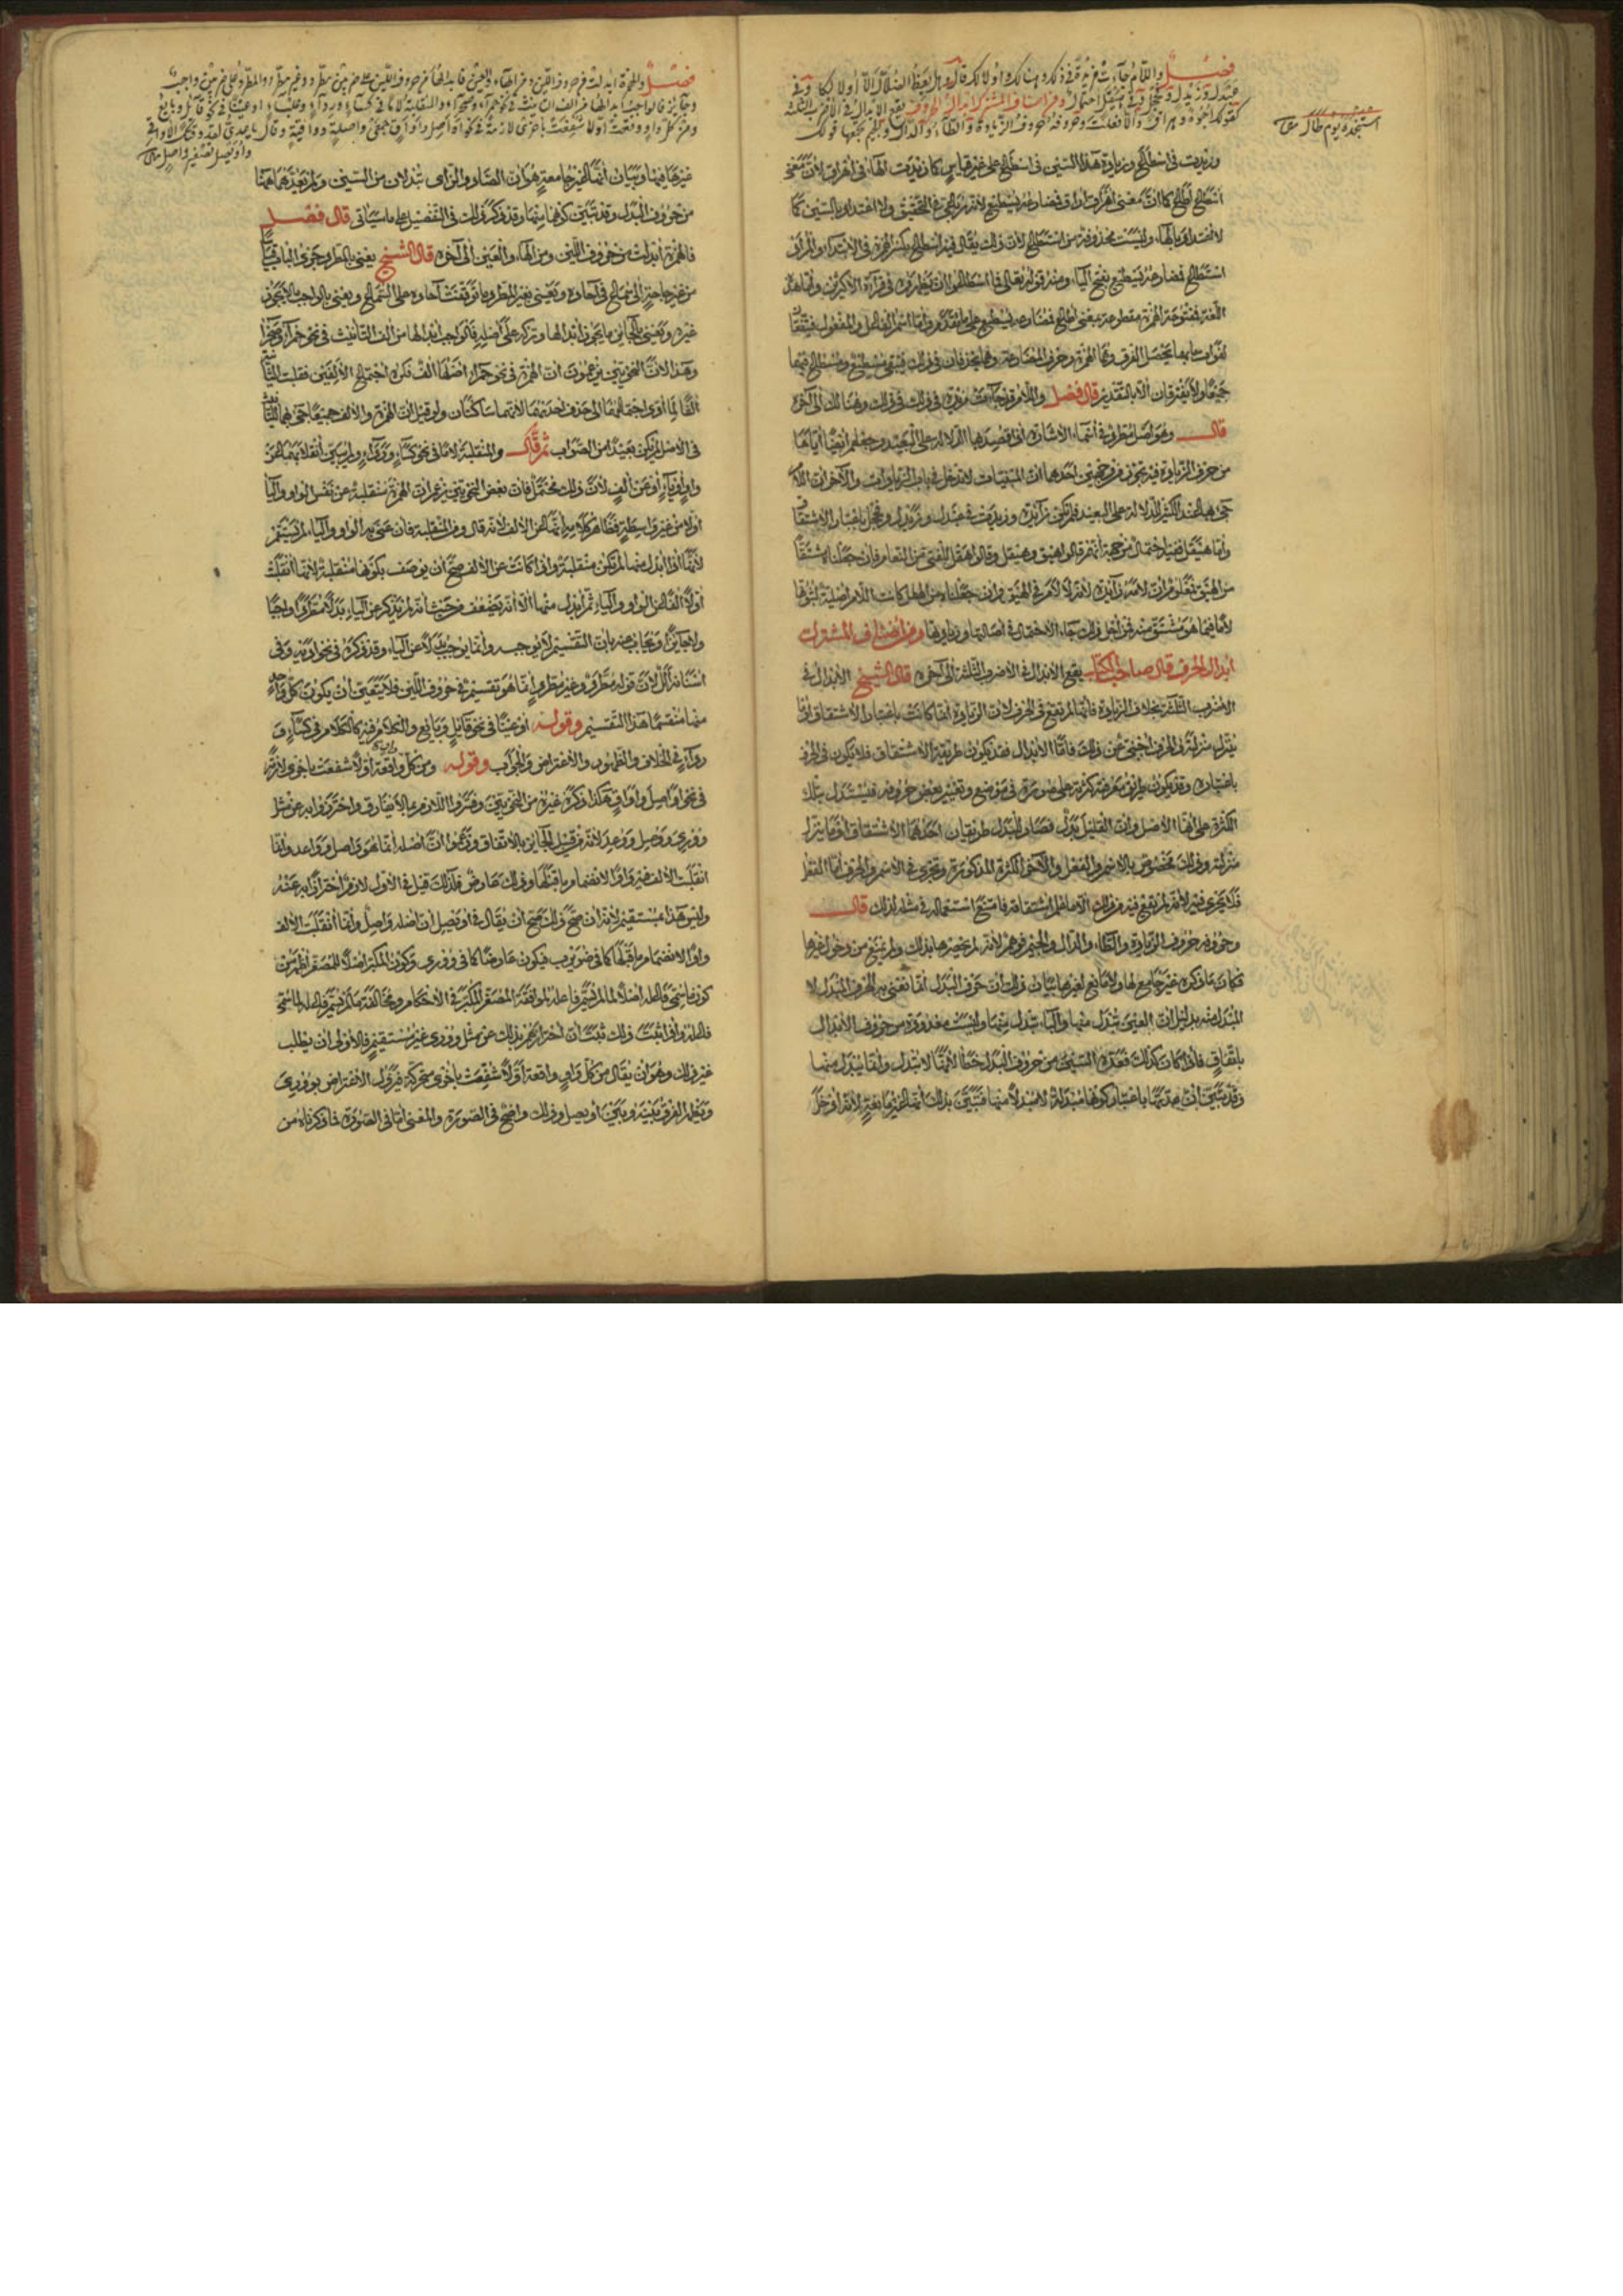 فصل واللام جاءت مزيدة في ذلك وهنالك وأولالك قال وهل يعظ الضلال إلا أولالكا وفي
عبدل وزيدل وفحجل وفي هيقل احتمال ومن أصناف المشترك إبدال الحروف يقع الإبدال في الأضرب الثلاثة
كقولك أجوه وهراق وألا فعلت وحروفه حروف الزيادة والطاء والدال والجيم يجمعها قولك
استنجده يوم طال
وزيدت في اسطاع وزيادة هذا السين في اسطاع على غير قياس كما زيدت الهاء في أهراق لأن معنى
اسطاع أطاع كما أن معنى أهراق أراق فمضارعه يسطيع لأنه رباعي في التحقيق ولا اعتداد بالسين كما
لا اعتداد بالهاء وليست محذوفة من استطاع لأن ذلك يقال فيه اسطاع بكسر الهمزة في الابتداء والمراد
استطاع فمضارعه يسطيع بفتح الياء ومنه قوله تعالى فما اسطاعوا أن يظهروه في قراءة الأكثرين وأما هذه
اللغة فمفتوحة الهمزة مقطوعة بمعنى أطاع فمضارعه يسطيع على ما تقدم وأما اسم الفاعل والمفعول فيتفقان
جميعا ولا يفترقان إلا بالتقدير قال فصل واللام قد جاءت مزيدة في ذلك وهنالك إلى آخره
قال وهو أصل مطرد في أسماء الإشارة إذا قصد بها الدلالة على البعيد وجعلهم أيضا إياها
من حروف الزيادة فيه تجوز من وجهين أحدهما أن المبنيات لا تدخل في باب الزيادات والآخر أن اللام
جيء بها لهذا الكثير الدلالة على البعيد فلم تكن زائدة وزيدت في عبدل وزيدل وفحجل باعتبار الاشتقاق
وأما هيقل ففيه احتمال من جهة أنهم قالوا هيق وهيقل وقالوا هقل للفتي من النعام فإن جعلناه مشتقا
من الهيق تعلم أن لامه زائدة لأنه لا لام في الهيق وإن جعلناه من الهقل كانت اللام أصلية لثبوتها
لاما فيما هو مشتق منه فمن أجل ذلك جاء الاحتمال في أصالتها وزيادتها ومن أصناف المشترك
إبدال الحرف قال صاحب الكتاب يقع الإبدال في الأضرب الثلاثة إلى آخره قال الشيخ الإبدال في
الأضرب الثلاثة بخلاف الزيادة فإنها لم تقع في الحرف لأن الزيادة إنما كانت باعتبار الاشتقاق أو ما
يتنزل منزلته والحرف أجنبي عن ذلك فأما الإبدال فقد يكون طريقه الاشتقاق فلا يكون في الحرف
باعتباره وقد يكون طريق معرفته كثرته على صورة في موضع وتغيير بعض حروفه فيستدل بتلك
الكثرة على أنها الأصل وأن القليل بدل فصار للبدل طريقان أحدهما الاشتقاق أو ما يتنزل
منزلته وذلك مخصوص بالاسم والفعل والآخر الكثرة المذكورة وتجري في الاسم والحرف أما الفعل
فلا يجري فيه لأنه لم يقع فيه من ذلك إلا ما علم اشتقاقه فامتنع استعماله في مثله لذلك قال
وحروفه حروف الزيادة والطاء والدال والجيم فوهم لأنه لم يحصرها بذلك ولم يمنع من دخول غيرها
فكان ما ذكره غير جامع لها ولا مانع لغيرها بيان ذلك أن حرف البدل إنما نعني به الحرف المبدل لا
المبدل منه بدليل أن العين تبدل منها والياء تبدل منها وليست معدودة من حروف الإبدال
باتفاق فإذا كان كذلك فعده السين من حروف البدل خطأ لأنها لا تبدل وإنما يبدل منها
وقد تبين أن عدتها باعتبار كونها مبدلة لا مبدلا منها فتبين بذلك أنها غير مانعة لأنه أدخل
فصل والهمزة أبدلت من حروف اللين ومن الهاء والعين فإبدالها من حروف اللين على ضربين مطرد وغير مطرد والمطرد على ضربين واجب
وجائز فالواجب إبدالها من ألف التأنيث في نحو حمراء وصحراء والمنقلبة لاما في كساء ورداء وعلباء أو عينا في نحو قائل وبائع
ومن كل واو وقعت أولا شفعت بأخرى لازمة في نحو أواصل وأواق جمعي واصلة وواقية وقال يا عدي لقد وقتك الأواقي
وأويصل تصغير واصل
غيرها فيها وبيان أنها لغير جامعة هو أن الصاد والزاي تبدلان من السين ولم يعدهما ههنا
من حروف البدل وقد تبين كونها منها وقد ذكر ذلك في التفصيل على ما سيأتي قال فصل
فالهمزة أبدلت من حروف اللين ومن الهاء والعين إلى آخره قال الشيخ يعني بالمطرد جري الباب قياسا
من غير حاجة إلى سماع في آحاده ويعني بغير المطرد ما توقفت آحاده على السماع ويعني بالواجب ما لا يجوز
غيره ويعني بالجائز ما يجوز إبدالها وتركه على أصله فالواجب إبدالها من ألف التأنيث في نحو حمراء وصحراء
وهذا لأن النحويين يزعمون أن الهمزة في نحو حمراء أصلها ألف فكره اجتماع الألفين فقلبت الثانية
ألفا لما أدى اجتماعهما إلى حذف أحدهما لأنهما ساكنان ولو قيل إن الهمزة والألف جميعا جيء بهما للتأنيث
في الأصل لم يكن بعيدا من الصواب ثم قال والمنقلبة لاما في نحو كساء ورداء ولم يبين انقلابهما عن
واو أو ياء أو عن ألف لأن ذلك محتمل فإن بعض النحويين يزعم أن الهمزة منقلبة عن نفس الواو والياء
أولا من غير واسطة فظاهر كلامه إنها عن الألف لأنه قال ومن المنقلبة فإن عنى به الواو والياء لم يستقم
لأنها إذا أبدل منها لم تكن منقلبة وإذا كانت عن الألف صح أن يوصف بكونها منقلبة لأنها انقلبت
أولا ألفا عن الواو والياء ثم أبدل منها إلا أنه يضعف من حيث أنه لم يذكر عن الياء بدلا مطردا واجبا
ولا جائزا ويجاب عنه بأن التقسيم لا يوجبه وإنما يوجب بدلا عن الياء وقد ذكره في نحو أديه وفي
منها منقسما هذا التقسيم وقوله أو عينا في نحو قائل وبائع والكلام فيه كالكلام في كساء و
رداء في الخلاف والظهور والاعتراض والجواب وقوله ومن كل واو واقعة أولا شفعت بأخرى لازمة
في نحو أواصل وأواق هكذا ذكره غيره من النحويين وفسروا اللازم بما لا يفارق واحترزوا به عن مثل
ووري ووصل ووعد لأنه من قبيل الجائز بالاتفاق وزعموا أن أصله إنما هو واصل وواعد وإنما
انقلبت الألف فيه واوا لانضمام ما قبلها وذلك عارض فلذلك قيل في الأول لازم احترازا به عنه
وليس هذا بمستقيم لأنه إن صح ذلك صح أن يقال في أويصل إن أصله واصل وإنما انقلبت الألف
واوا لانضمام ما قبلها كما في ضويرب فيكون عارضا كما في ووري وكون المكبر أصلا للمصغر أظهر من
فاعله وإذا ثبت ذلك ثبت أن احترازهم بذلك عن مثل ووري غير مستقيم فالأولى أن يطلب
غير ذلك وهو أن يقال من كل واو واقعة أولا شفعت بأخرى متحركة فيزول الاعتراض بووري
ويظهر الفرق بينه وبين أويصل وذلك واضح في الصورة والمعنى أما في الصورة فما ذكرناه من